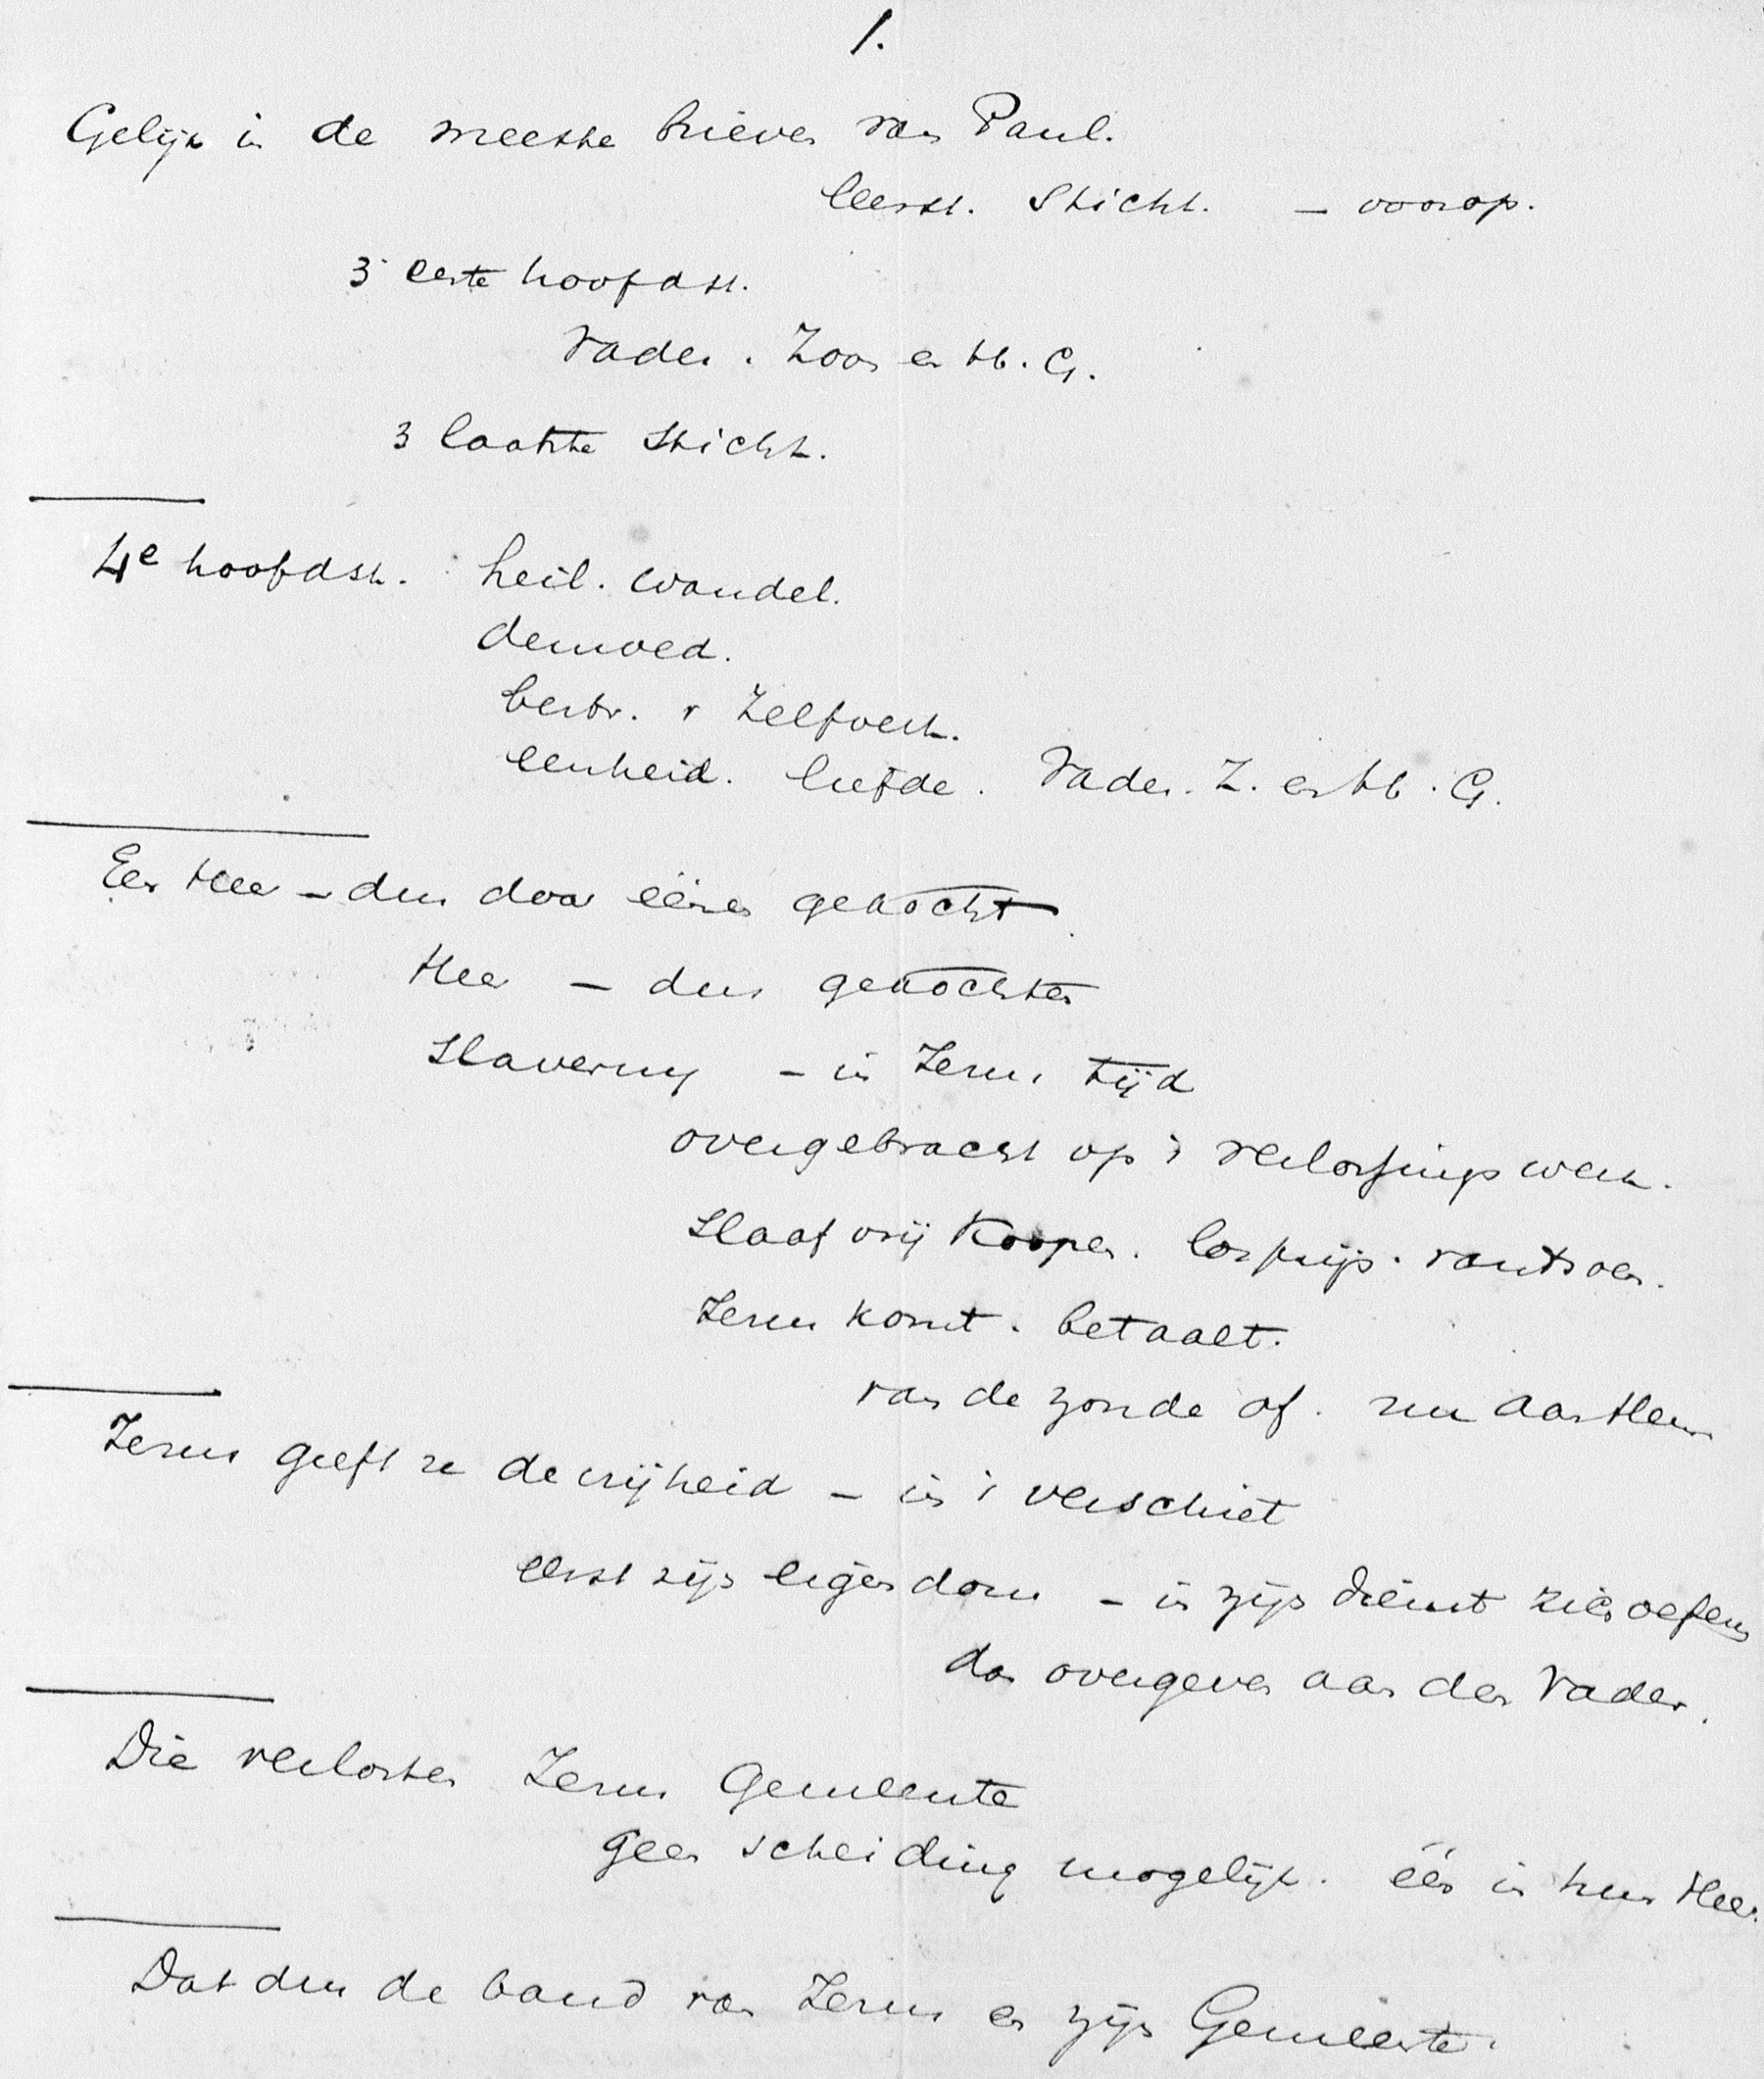 1.
Gelijk in de meeste brieven van Paul.
leerst. Sticht. – voorop.
3 eerste hoofdst.
Vader. Zoon en H. G.
3 laatste Sticht.
4e hoofdst. heil. wandel.
demoed.
bestr. v zelfverh.
eenheid. liefde. Vader. Z. en H. G.
Een Heer – dus door éénen gekocht.
Heer – dus gekochten
Slaverny – in Jezus tijd
overgebracht op 't verlossingswerk.
Slaaf vrij koopen. losprijs. rantsoen.
Jezus komt. betaalt.
van de zonde af. nu aan Hem
Jezus geeft ze de vrijheid – in 't verschiet
eerst zijn eigendom – in zijn dienst zich oefenen
dan overgeven aan den Vader.
Die verlosten Jezus Gemeente
geen scheiding mogelijk. één in hun Heer.
Dat dus de band van Jezus en zijn Gemeente.